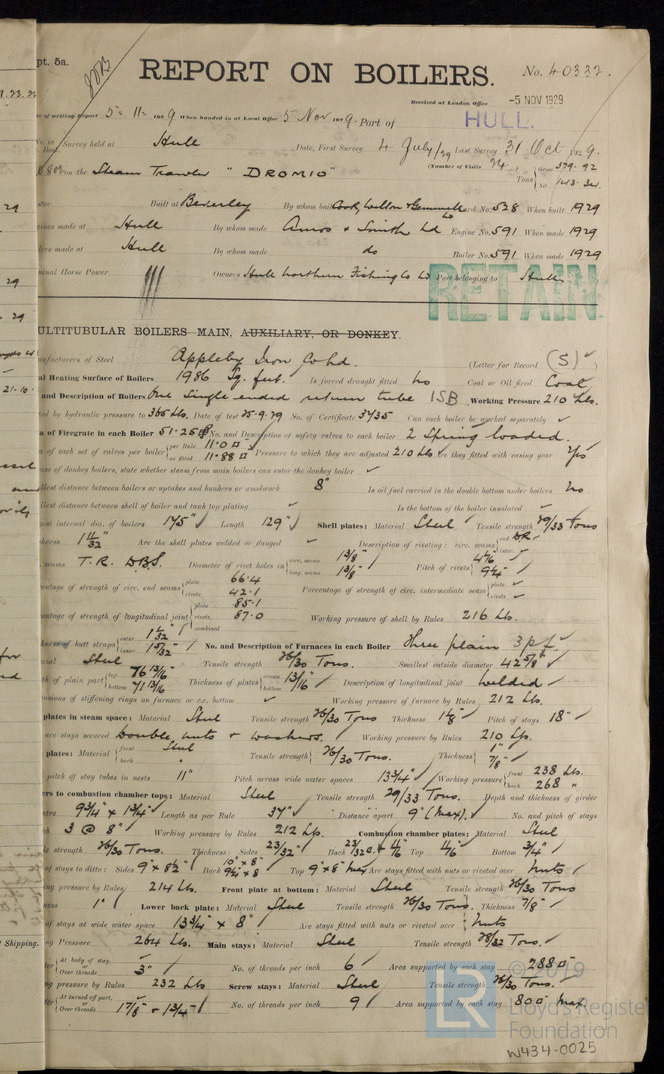 pt. 5a.
REPORT ON BOILERS.
No. 40332.
Received at London Office -5 NOV 1929
of writing Report 5- 11- 1929 When handed in at Local Office 5 Nov 1929 Port of HULL.
Survey held at Hull Date, First Survey 4 July/29 Last Survey 31 Oct 1929.
(Number of Visits 24) Gross 379.92
on the Steam Trawler "DROMIO" Tons Net 143.
Built at Beverley By whom built Cook, Welton & Gemmell Ld Yard No. 528 When built 1929
made at Hull By whom made Amos & Smith Ld Engine No. 591 When made 1929
made at Hull By whom made do Boiler No. 591 When made 1929
Horse Power Owners Hull Northern Fishing Co Ld Port belonging to Hull
RETAIN
ULTITUBULAR BOILERS MAIN, AUXILIARY, OR DONKEY.
of Steel Appleby Iron Co Ld. (Letter for Record (S))
Heating Surface of Boilers 1986 Sq. feet. Is forced draught fitted No Coal or Oil fired Coal
and Description of Boilers One Single ended return tube 1SB Working Pressure 210 Lbs.
by hydraulic pressure to 365 Lbs. Date of test 25-9-29 No. of Certificate 3735 Can each boiler be worked separately ✓
of Firegrate in each Boiler 51.25 No. and Description of safety valves to each boiler 2 Spring loaded.
of each set of valves per boiler per Rule 11.0 as fitted 11.88 Pressure to which they are adjusted 210 Lbs. Are they fitted with easing gear Yes
of donkey boilers, state whether steam from main boilers can enter the donkey boiler ✓
distance between boilers or uptakes and bunkers or woodwork 8" Is oil fuel carried in the double bottom under boilers No
distance between shell of boiler and tank top plating ✓ Is the bottom of the boiler insulated ✓
internal dia. of boilers 175" Length 129" Shell plates: Material Steel Tensile strength 29/33 Tons
1 11/32" Are the shell plates welded or flanged ✓ Description of riveting: circ. seams end D.R.
seams T.R. D.B.S. Diameter of rivet holes in circ. seams 1 3/8" long. seams 1 3/8" Pitch of rivets 9 1/4"
of strength of circ. end seams plate 66.4 rivets 42.1 Percentage of strength of circ. intermediate seam plate ✓ rivets ✓
of strength of longitudinal joint plate 85.1 rivets 87.0 combined Working pressure of shell by Rules 216 Lbs.
of butt straps outer 1 1/32" inner 1 5/32" No. and Description of Furnaces in each Boiler Three plain 3 p f
Steel Tensile strength 26/30 Tons. Smallest outside diameter 42 5/8"
of plain part top 76 13/16" bottom 71 13/16" Thickness of plates crown bottom 13/16" Description of longitudinal joint Welded
of stiffening rings on furnace or c.c. bottom ✓ Working pressure of furnace by Rules 212 Lbs.
plates in steam space: Material Steel Tensile strength 26/30 Tons Thickness 1 1/8" Pitch of stays 18"
are stays secured Double nuts & washers. Working pressure by Rules 210 Lbs.
plates: Material front Steel back " Tensile strength 26/30 Tons. Thickness 1" 7/8"
pitch of stay tubes in nests 11" Pitch across wide water spaces 13 3/4" Working pressure front 238 Lbs. back 268 "
to combustion chamber tops: Material Steel Tensile strength 29/33 Tons. Depth and thickness of girder
9 3/4" x 1 3/4" Length as per Rule 37" Distance apart 9" (Max). No. and pitch of stays
3 @ 8" Working pressure by Rules 212 Lbs. Combustion chamber plates: Material Steel
strength 26/30 Tons. Thickness: Sides 23/32" Back 23/32" Top Bottom 3/4"
of stays to ditto: Sides 9" x 8 1/2" Back 10" x 8" 9 3/4" x 8" Top 9" x 8" Max Are stays fitted with nuts or riveted over Nuts
pressure by Rules 214 Lbs. Front plate at bottom: Material Steel Tensile strength 26/30 Tons
1" Lower back plate: Material Steel Tensile strength 26/30 Tons. Thickness 7/8"
of stays at wide water space 13 3/4" x 8" Are stays fitted with nuts or riveted over Nuts
Pressure 264 Lbs. Main stays: Material Steel Tensile strength 28/32 Tons.
At body of stay, or Over threads 3" No. of threads per inch 6 Area supported by each stay 288
pressure by Rules 232 Lbs Screw stays: Material Steel Tensile strength 26/30 Tons.
At turned off part, or Over threads 1 7/8" & 1 3/4" No. of threads per inch 9 Area supported by each stay 80 Max
© 2019
LR Lloyd's Register Foundation
W434-0025